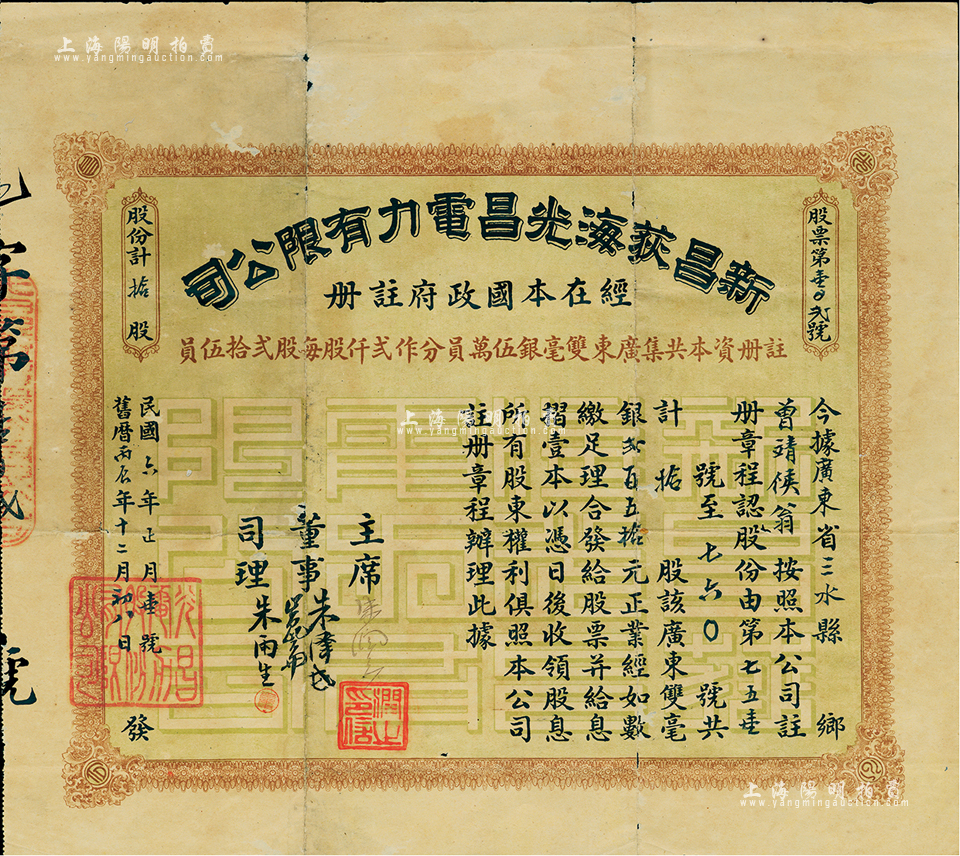 上海陽明拍賣
www.yangmingauction.com
新昌荻海光昌電力有限公司
經在本國政府註册
註册資本共集廣東雙毫銀伍萬員分作弍仟股每股弍拾伍員
股票第壹0弍號
股份計 拾 股
今據廣東省三水縣 鄉
曾靖侯翁 按照本公司註
册章程認股份由第七五壹
號至 七六0 號共
計 拾 股該廣東雙毫
銀弍百五拾元正業經如數
繳足理合發給股票并給息
摺壹本以憑日後收領股息
所有股東權利俱照本公司
註册章程辦理此據
主席
董事 朱
司理 朱雨生
民國六年正月壹號
舊曆丙辰年十二月初八日
發
字第
號
上海陽明拍賣
www.yangmingauction.com
上海陽明拍賣
www.yangmingauction.com